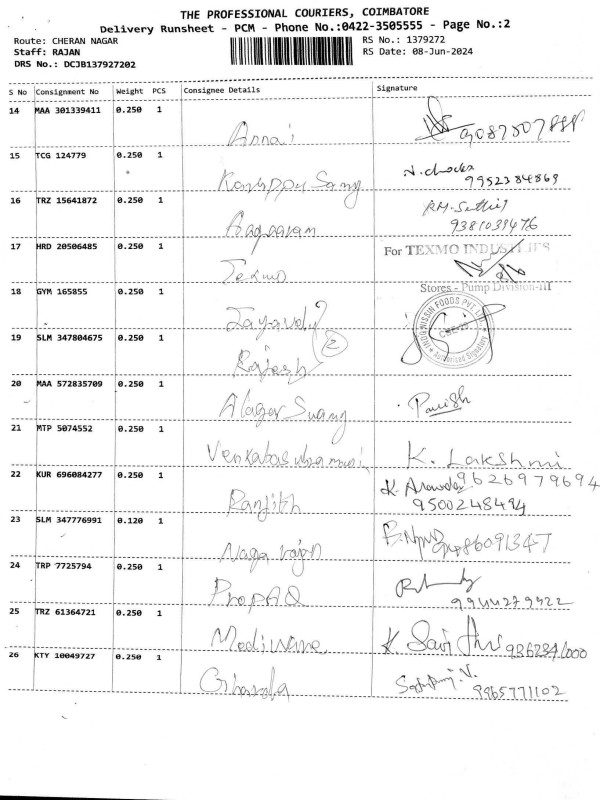 THE PROFESSIONAL COURIERS, COIMBATORE
Delivery Runsheet - PCM - Phone No.:0422-3505555 - Page No.:2
Route: CHERAN NAGAR RS No.: 1379272
Staff: RAJAN RS Date: 08-Jun-2024
DRS No.: DCJB137927202
S No Consignment No Weight PCS Consignee Details Signature
14 MAA 301339411 0.250 1
Annai
15 TCG 124779 0.250 1
9952384869
16 TRZ 15641872 0.250 1
9381039476
17 HRD 20506485 0.250 1 For TEXMO INDUSTRIES
Texmo
Stores - Pump Division-III
18 GYM 165855 0.250 1
19 SLM 347804675 0.250 1 2
Rajesh Authorised Signatory
20 MAA 572835709 0.250 1
Alagar Suamy
21 MTP 5074552 0.250 1
K. Lakshmi
22 KUR 696084277 0.250 1 9626979694
Ranjith 9500248494
23 SLM 347776991 0.120 1
Nagarajan 9486091347
24 TRP 7725794 0.250 1
PropAQ 9944279922
25 TRZ 61364721 0.250 1
26 KTY 10049727 0.250 1
9965771102